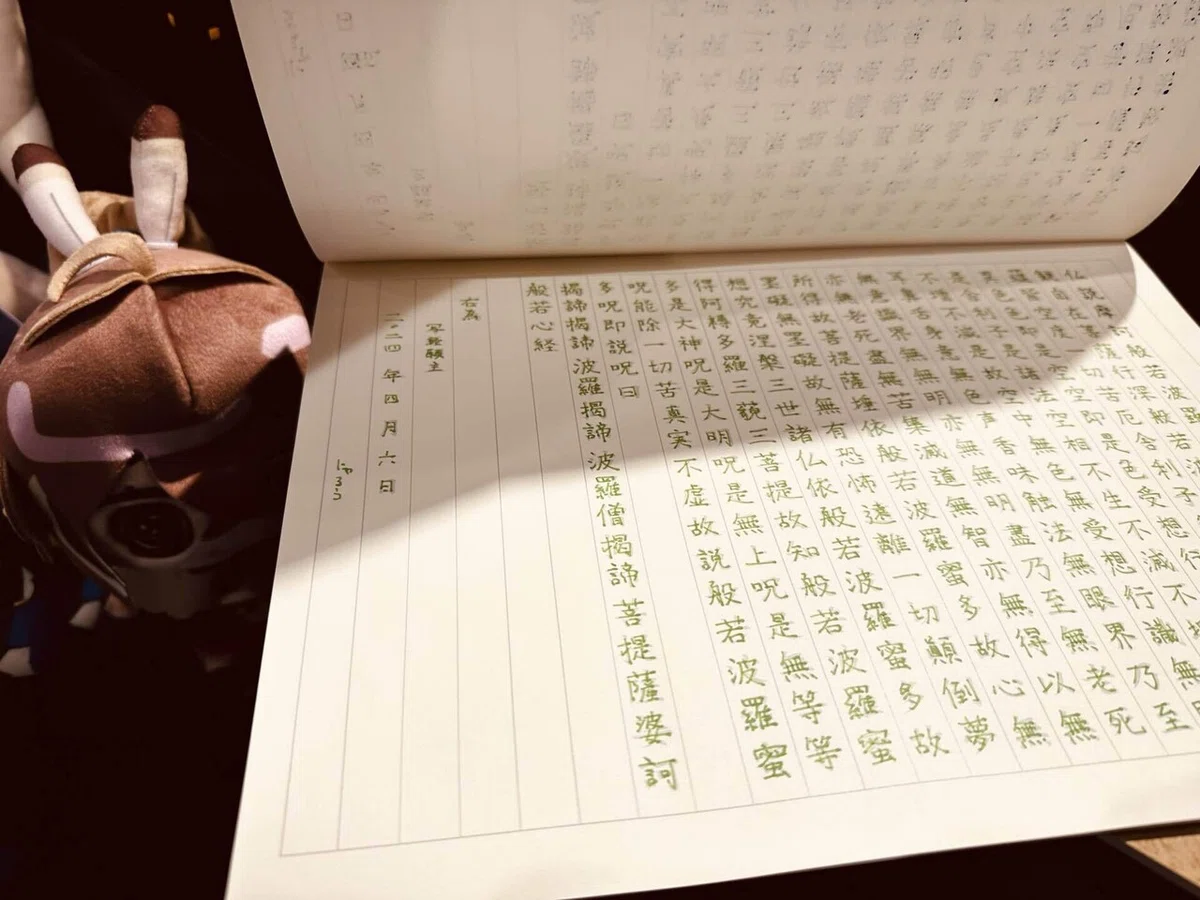 仏説摩訶般若波羅
観自在菩薩行深般若波
皆空度一切苦厄舎利子
異色色即是空空即是色受想行
是舎利子是諸法空相不生不滅不
不増不減是故空中無色無受想行識無
耳鼻舌身意無色声香味触法無眼界乃至
無意識界無無明亦無無明盡乃至無老死
亦無老死盡無苦集滅道無智亦無得以無
所得故菩提薩埵依般若波羅蜜多故心無
罣礙無罣礙故無有恐怖遠離一切顛倒夢
想究竟涅槃三世諸仏依般若波羅蜜多故
得阿耨多羅三藐三菩提故知般若波羅蜜
多是大神呪是大明呪是無上呪是無等等
呪能除一切苦真実不虚故説般若波羅蜜
多呪即説呪曰
揭諦揭諦波羅揭諦波羅僧揭諦菩提薩婆訶
般若心経
右為
写経願主
二〇二四年四月六日